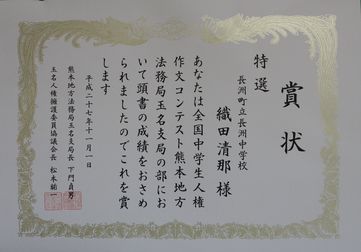 賞状
特選
長洲町立長洲中学校
織田清那様
あなたは全国中学生人権
作文コンテスト熊本地方
法務局玉名支局の部にお
いて頭書の成績をおさめ
られましたのでこれを賞
します
平成二十七年十一月一日
熊本地方法務局玉名支局長 下門貞
玉名人権擁護委員協議会長 松本輔一